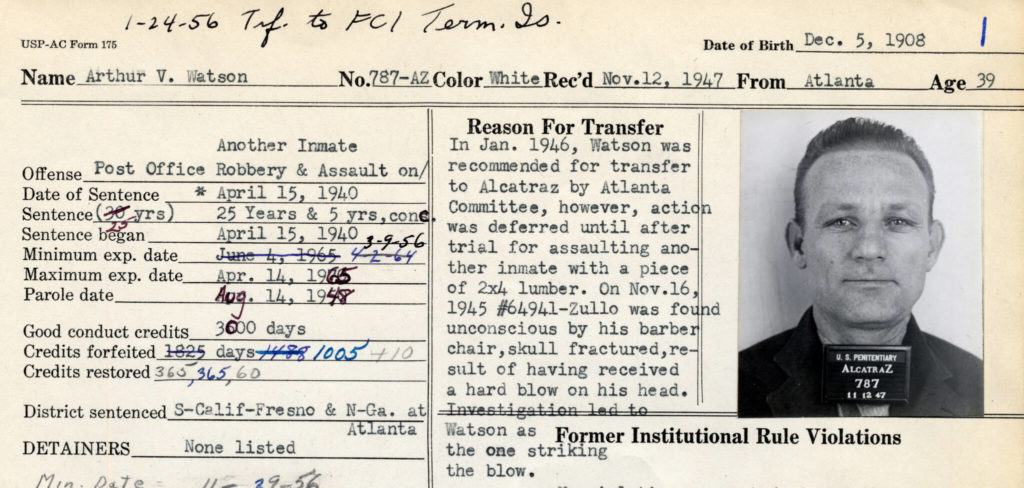 1-24-56 Trf. to FCI Term. Is.
USP-AC Form 175
Date of Birth Dec. 5, 1908 1
Name Arthur V. Watson No. 787-AZ Color White Rec'd Nov.12, 1947 From Atlanta Age 39
Another Inmate
Offense Post Office Robbery & Assault on/
Date of Sentence * April 15, 1940
Sentence (30 yrs) 25 Years & 5 yrs,conc.
25
Sentence began April 15, 1940 3-9-56
Minimum exp. date June 4, 1965 4-2-64
Maximum exp. date Apr. 14, 1965
Parole date Aug. 14, 1948
Good conduct credits 3000 days
Credits forfeited 1825 days 1488 1005 +10
Credits restored 365,365,60
District sentenced S-Calif-Fresno & N-Ga. at
Atlanta
DETAINERS None listed
Min. Date - 11- 29-56
Reason For Transfer
In Jan. 1946, Watson was
recommended for transfer
to Alcatraz by Atlanta
Committee, however, action
was deferred until after
trial for assaulting ano-
ther inmate with a piece
of 2x4 lumber. On Nov.16,
1945 #64941-Zullo was found
unconscious by his barber
chair,skull fractured,re-
sult of having received
a hard blow on his head.
Investigation led to
Watson as
the one striking
the blow.
Former Institutional Rule Violations
U. S. PENITENTIARY
ALCATRAZ
787
11 12 47